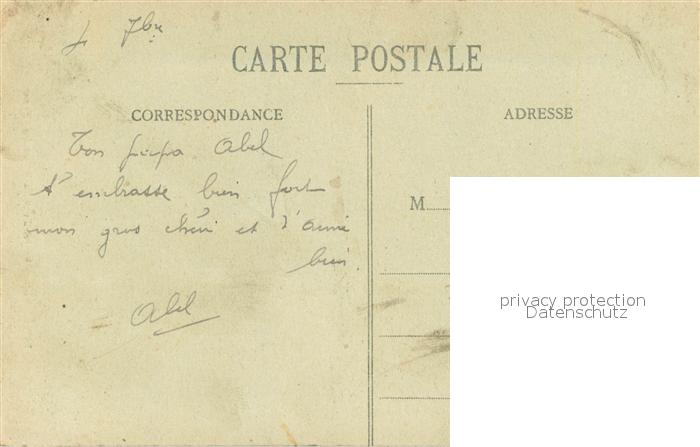 4 7bre
CARTE POSTALE
CORRESPONDANCE
ADRESSE
Ton papa Abel
t'embrasse bien fort
mon gros chéri et t'aime
bien.
Abel
M
privacy protection
Datenschutz